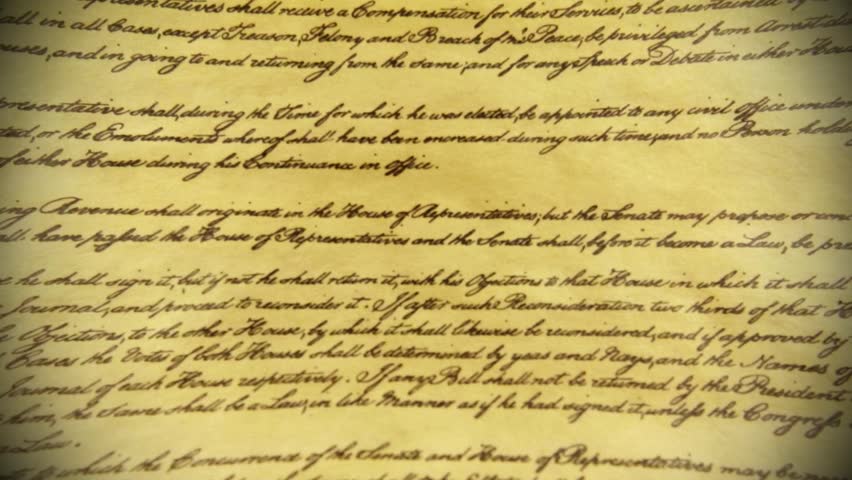 presentatives shall receive a Compensation for their Services, to be ascertained by
all in all Cases, except Treason, Felony and Breach of the Peace, be privileged from Arrest du
ouses, and in going to and returning from the same; and for any Speech or Debate in either Hous
presentative shall, during the Time for which he was elected, be appointed to any civil office under
ted, or the Emoluments whereof shall have been encreased during such time; and no Person holdi
of either House during his Continuance in office.
ing Revenue shall originate in the House of Representatives; but the Senate may propose or conc
all have passed the House of Representatives and the Senate shall, before it become a Law, be pre
he shall sign it, but if not he shall return it, with his Objections to that House in which it shall
Journal, and proceed to reconsider it. If after such Reconsideration two thirds of that H
Objections, to the other House, by which it shall likewise be reconsidered, and if approved by
Cases the Votes of both Houses shall be determined by yeas and Nays, and the Names of
Journal of each House respectively. If any Bill shall not be returned by the President
him, the Same shall be a Law, in like Manner as if he had signed it, unless the Congress
a Law.
to which the Concurrence of the Senate and House of Representatives may be